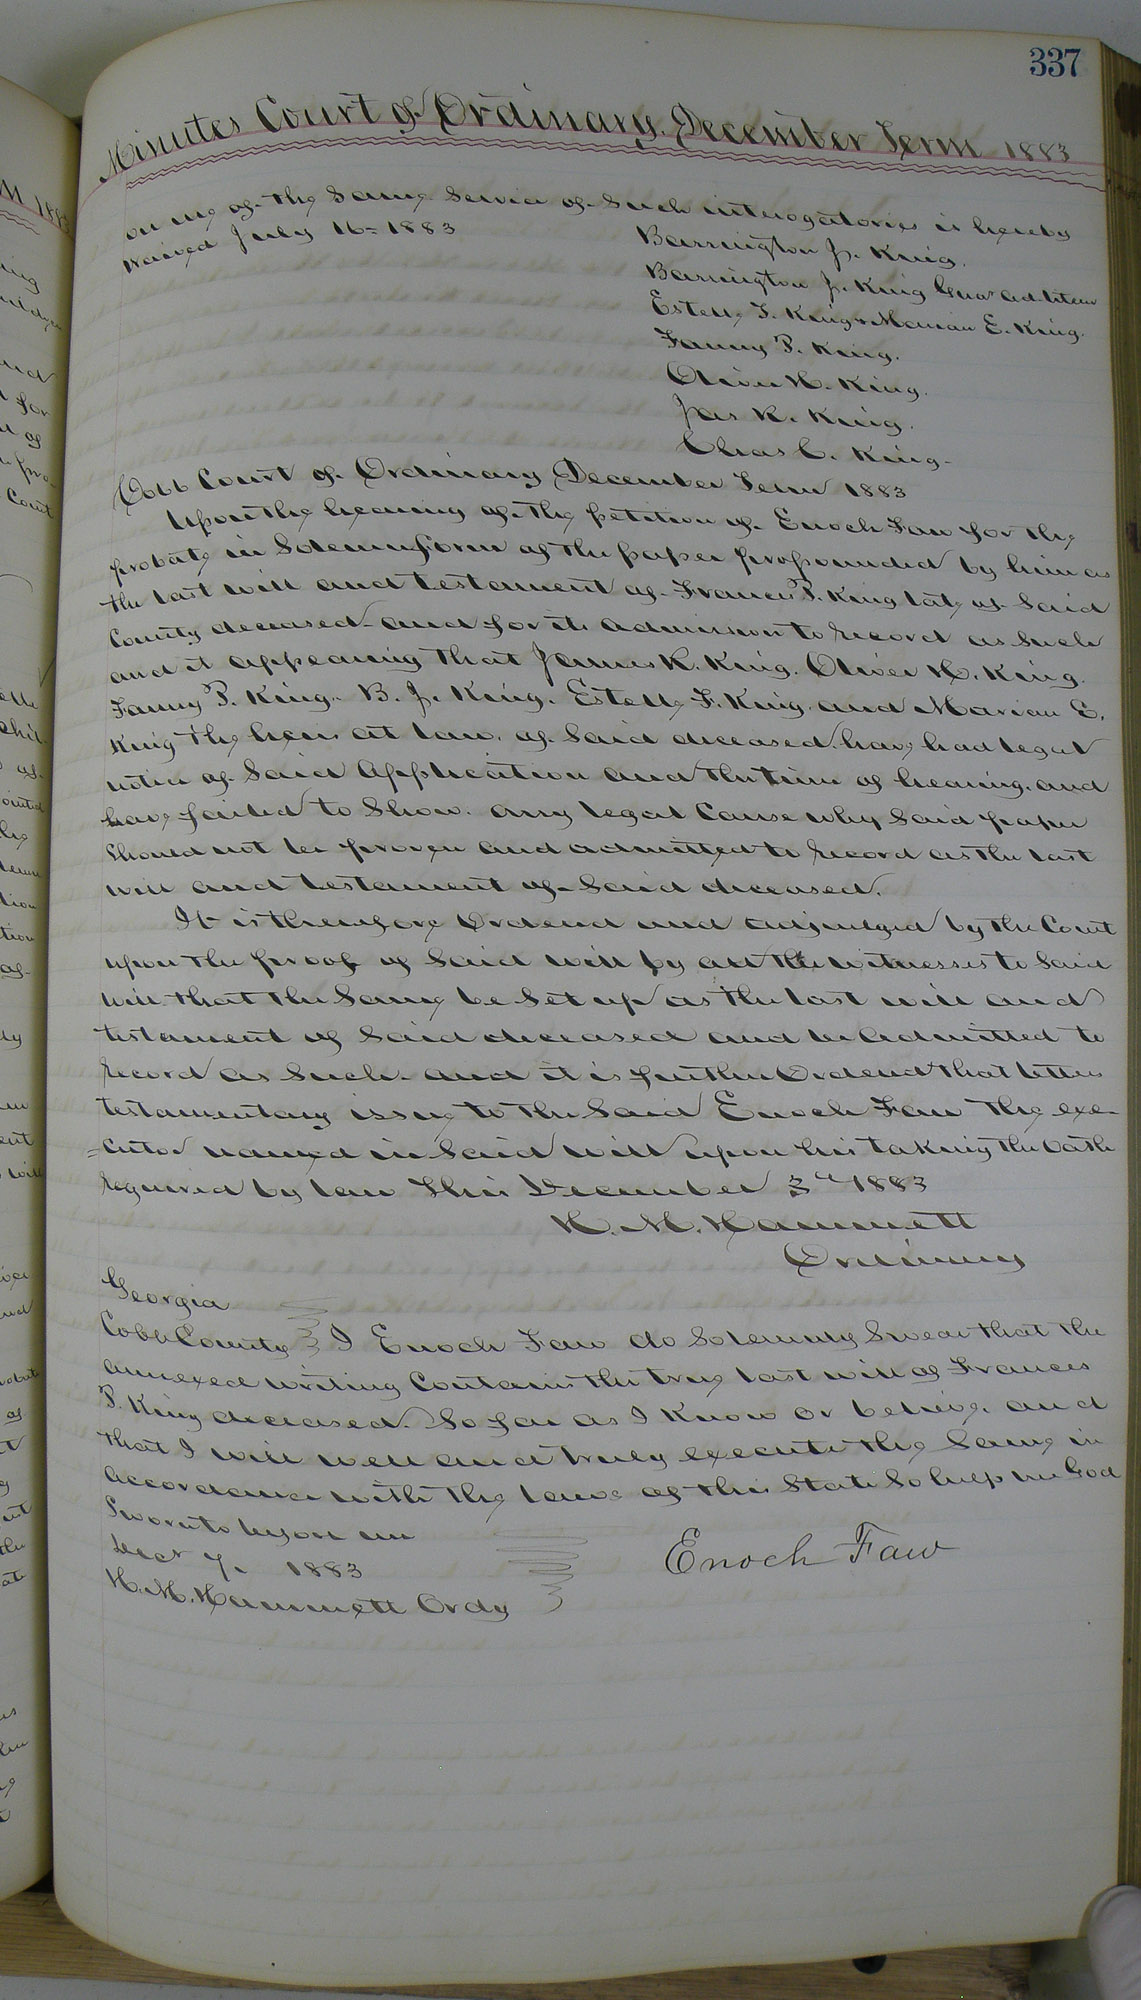 337
Minutes Court of Ordinary. December Term 1883
on us of the same Service of Such interogatories is hereby
waived July 16= 1883
Barrington J. King.
Barrington J. King Guar ad litem
Estelle F. King & Marian E. King.
Fanny P. King.
Oliver H. King.
Jas R. King.
Chas C. King.
Cobb Court of Ordinary December Term 1883
Upon the hearing of the petition of Enoch Faw for the
probate in Solemn form of the paper propounded by him as
the last will and testament of Frances P. King late of Said
County deceased and for its admission to record as Such
and it appearing that James R. King. Oliver H. King.
Fanny P. King. B. J. King. Estelle F. King. and Marian E.
King the heirs at law. of Said deceased. have had legal
notice of Said application and the time of hearing. and
have failed to Show. any legal Cause why Said paper
Should not be proven and admitted to record as the last
will and testament of Said deceased.
It is therefore Ordered and adjudged by the Court
upon the proof of Said will by all the witnesses to Said
will that the Same be Set up as the last will and
testament of Said deceased and be admitted to
record as Such. and it is further Ordered that letters
testamentary issue to the Said Enoch Faw the exe-
=cutor named in Said will upon his taking the Oath
required by law This December 3rd 1883
H. M. Hammett
Ordinary
Georgia
Cobb County I Enoch Faw do Solemnly Swear that the
annexed writing Contains the true last will of Frances
P. King deceased. So far as I know or believe. and
that I will well and truly execute the Same in
accordance with the laws of this State So help me God
Sworn to before me
Decr 7. 1883
Enoch Faw
H. M. Hammett Ordy